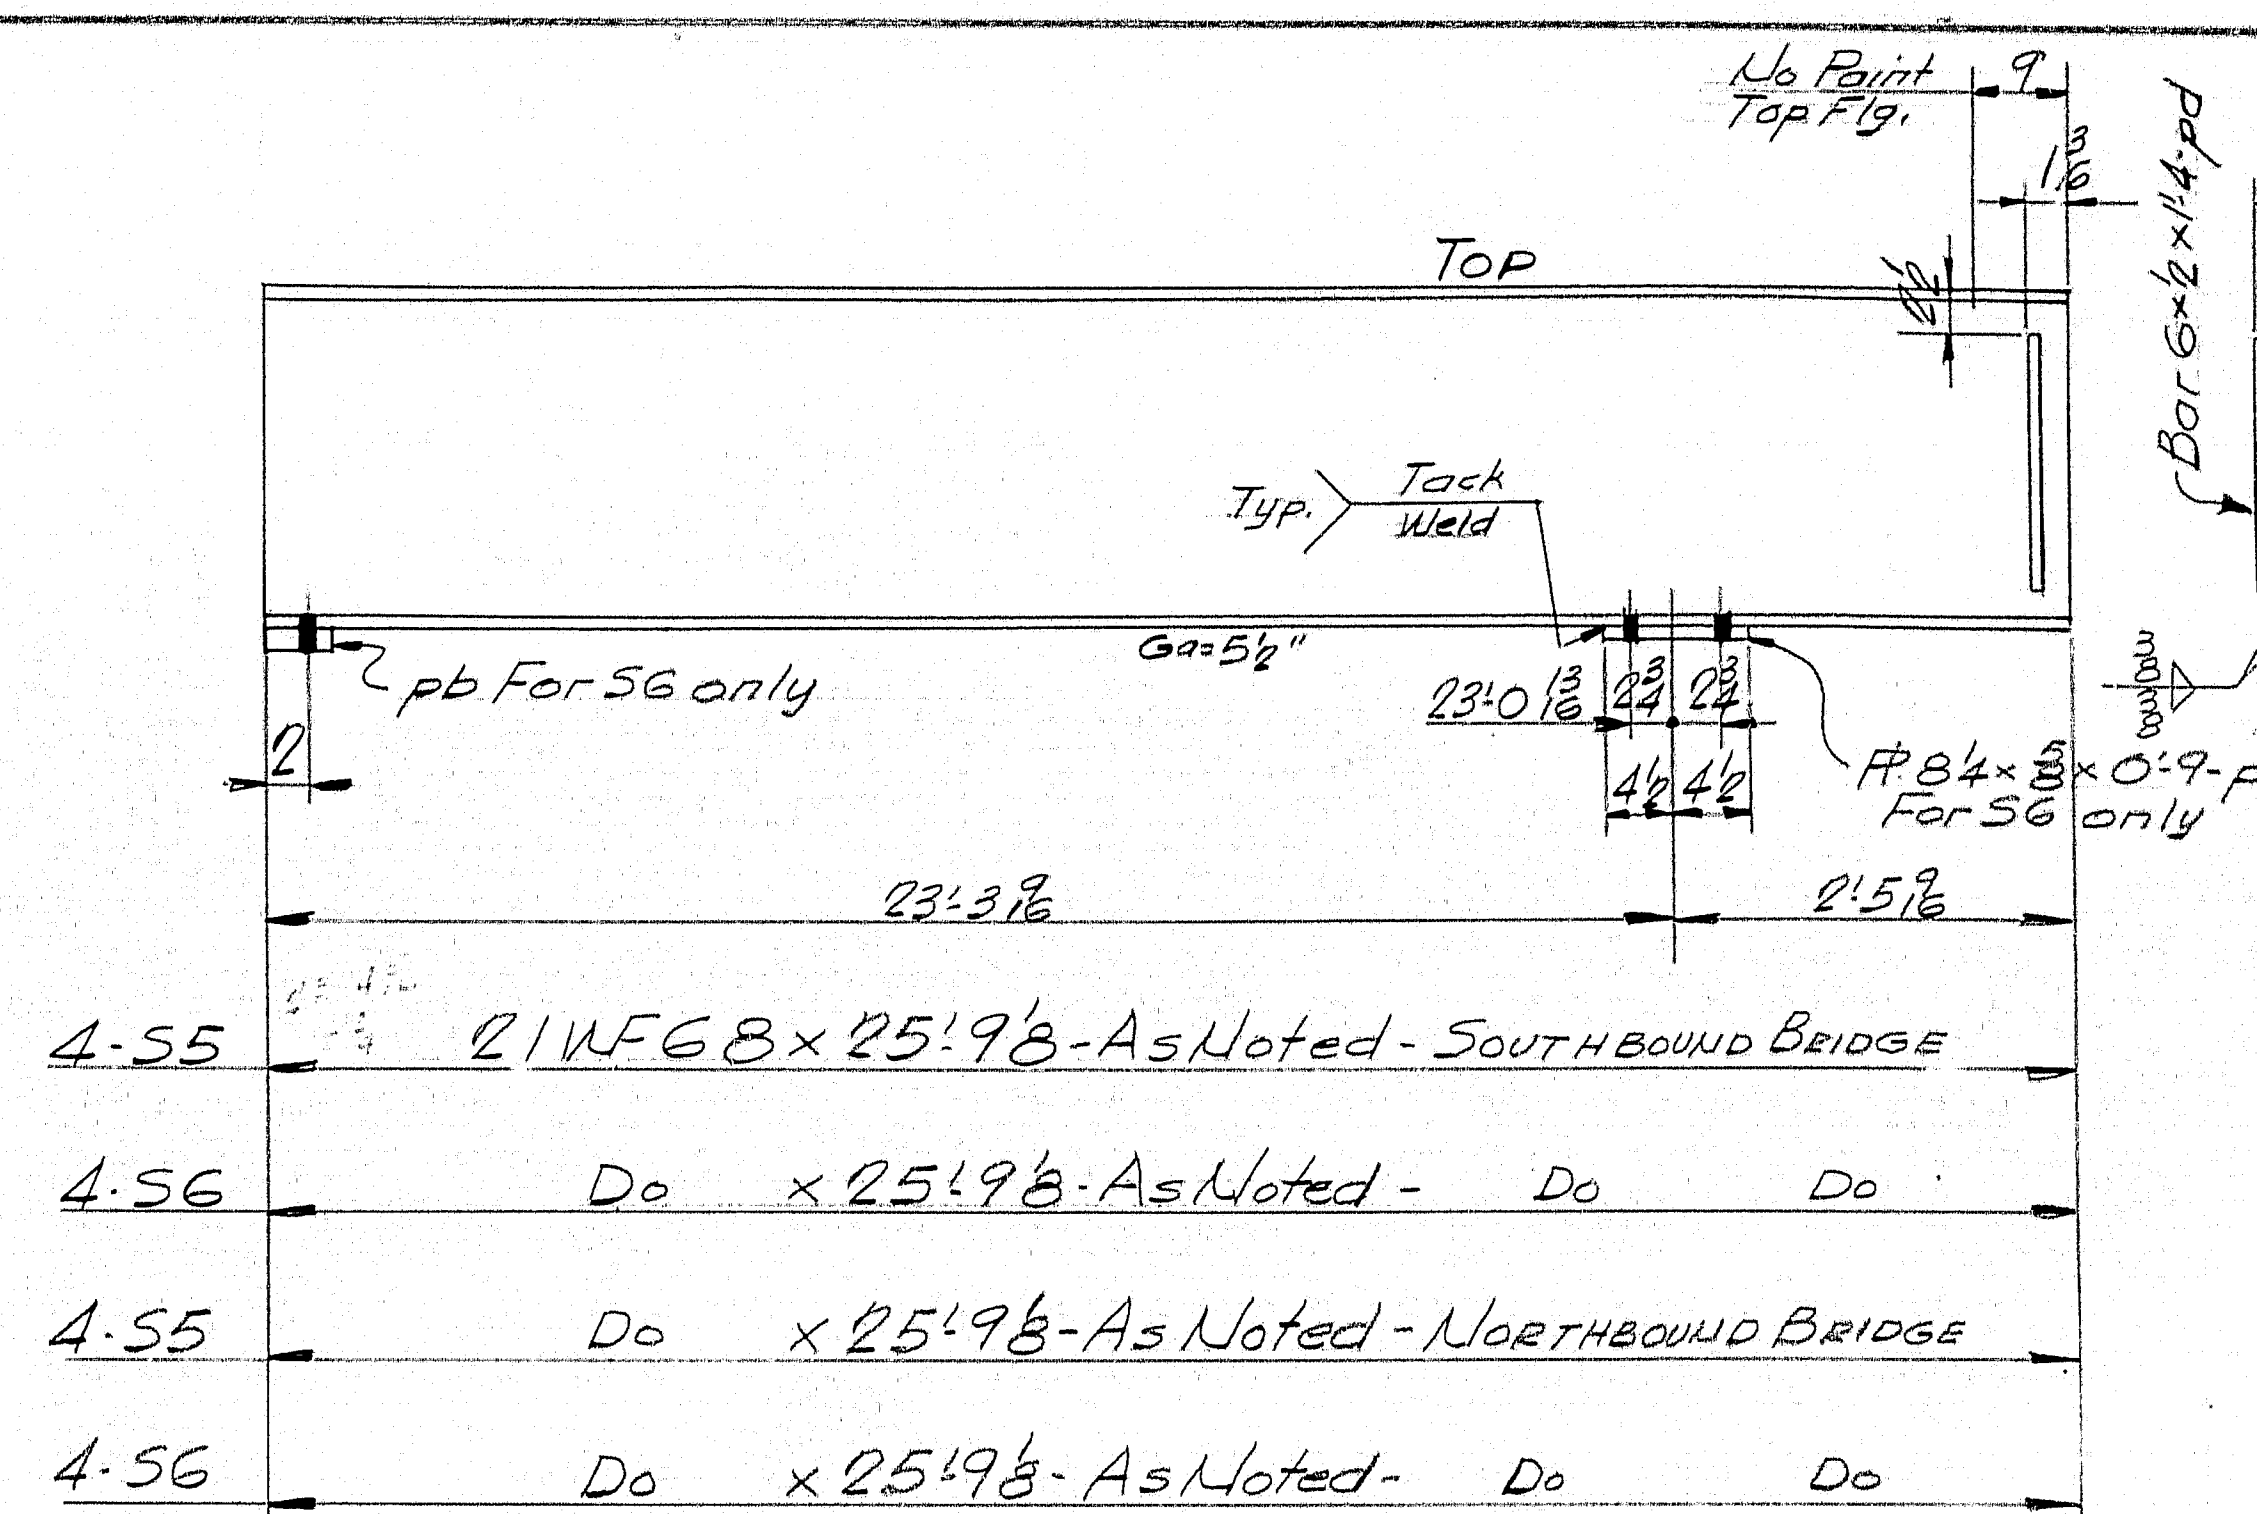 No Paint 9
Top Flg.
1 3/16
Bar 6 x 1/2 x 1'-4-pd
TOP
2 1/2
Typ. Tack
Weld
Ga=5 1/2"
pb For S6 only
2
23'-0 13/16 2 3/4 2 3/4
3/8
3/8
4 1/2 4 1/2
PL 8 1/4 x 5/8 x 0'-9-
For S6 only
23'-3 9/16 2'-5 9/16
4-S5 21WF68 x 25'-9 1/8-As Noted-SOUTHBOUND BRIDGE
4-S6 Do x 25'-9 1/8-As Noted- Do Do
4-S5 Do x 25'-9 1/8-As Noted-NORTHBOUND BRIDGE
4-S6 Do x 25'-9 1/8-As Noted- Do Do